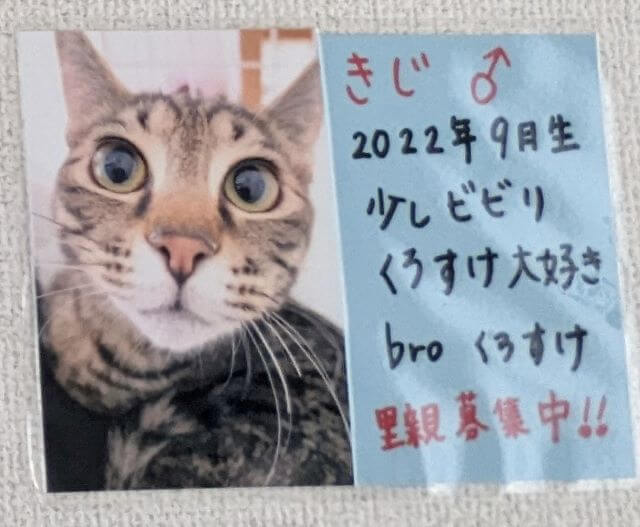 きじ ♂
2022年9月生
少しビビリ
くろすけ大好き
bro くろすけ
里親募集中!!